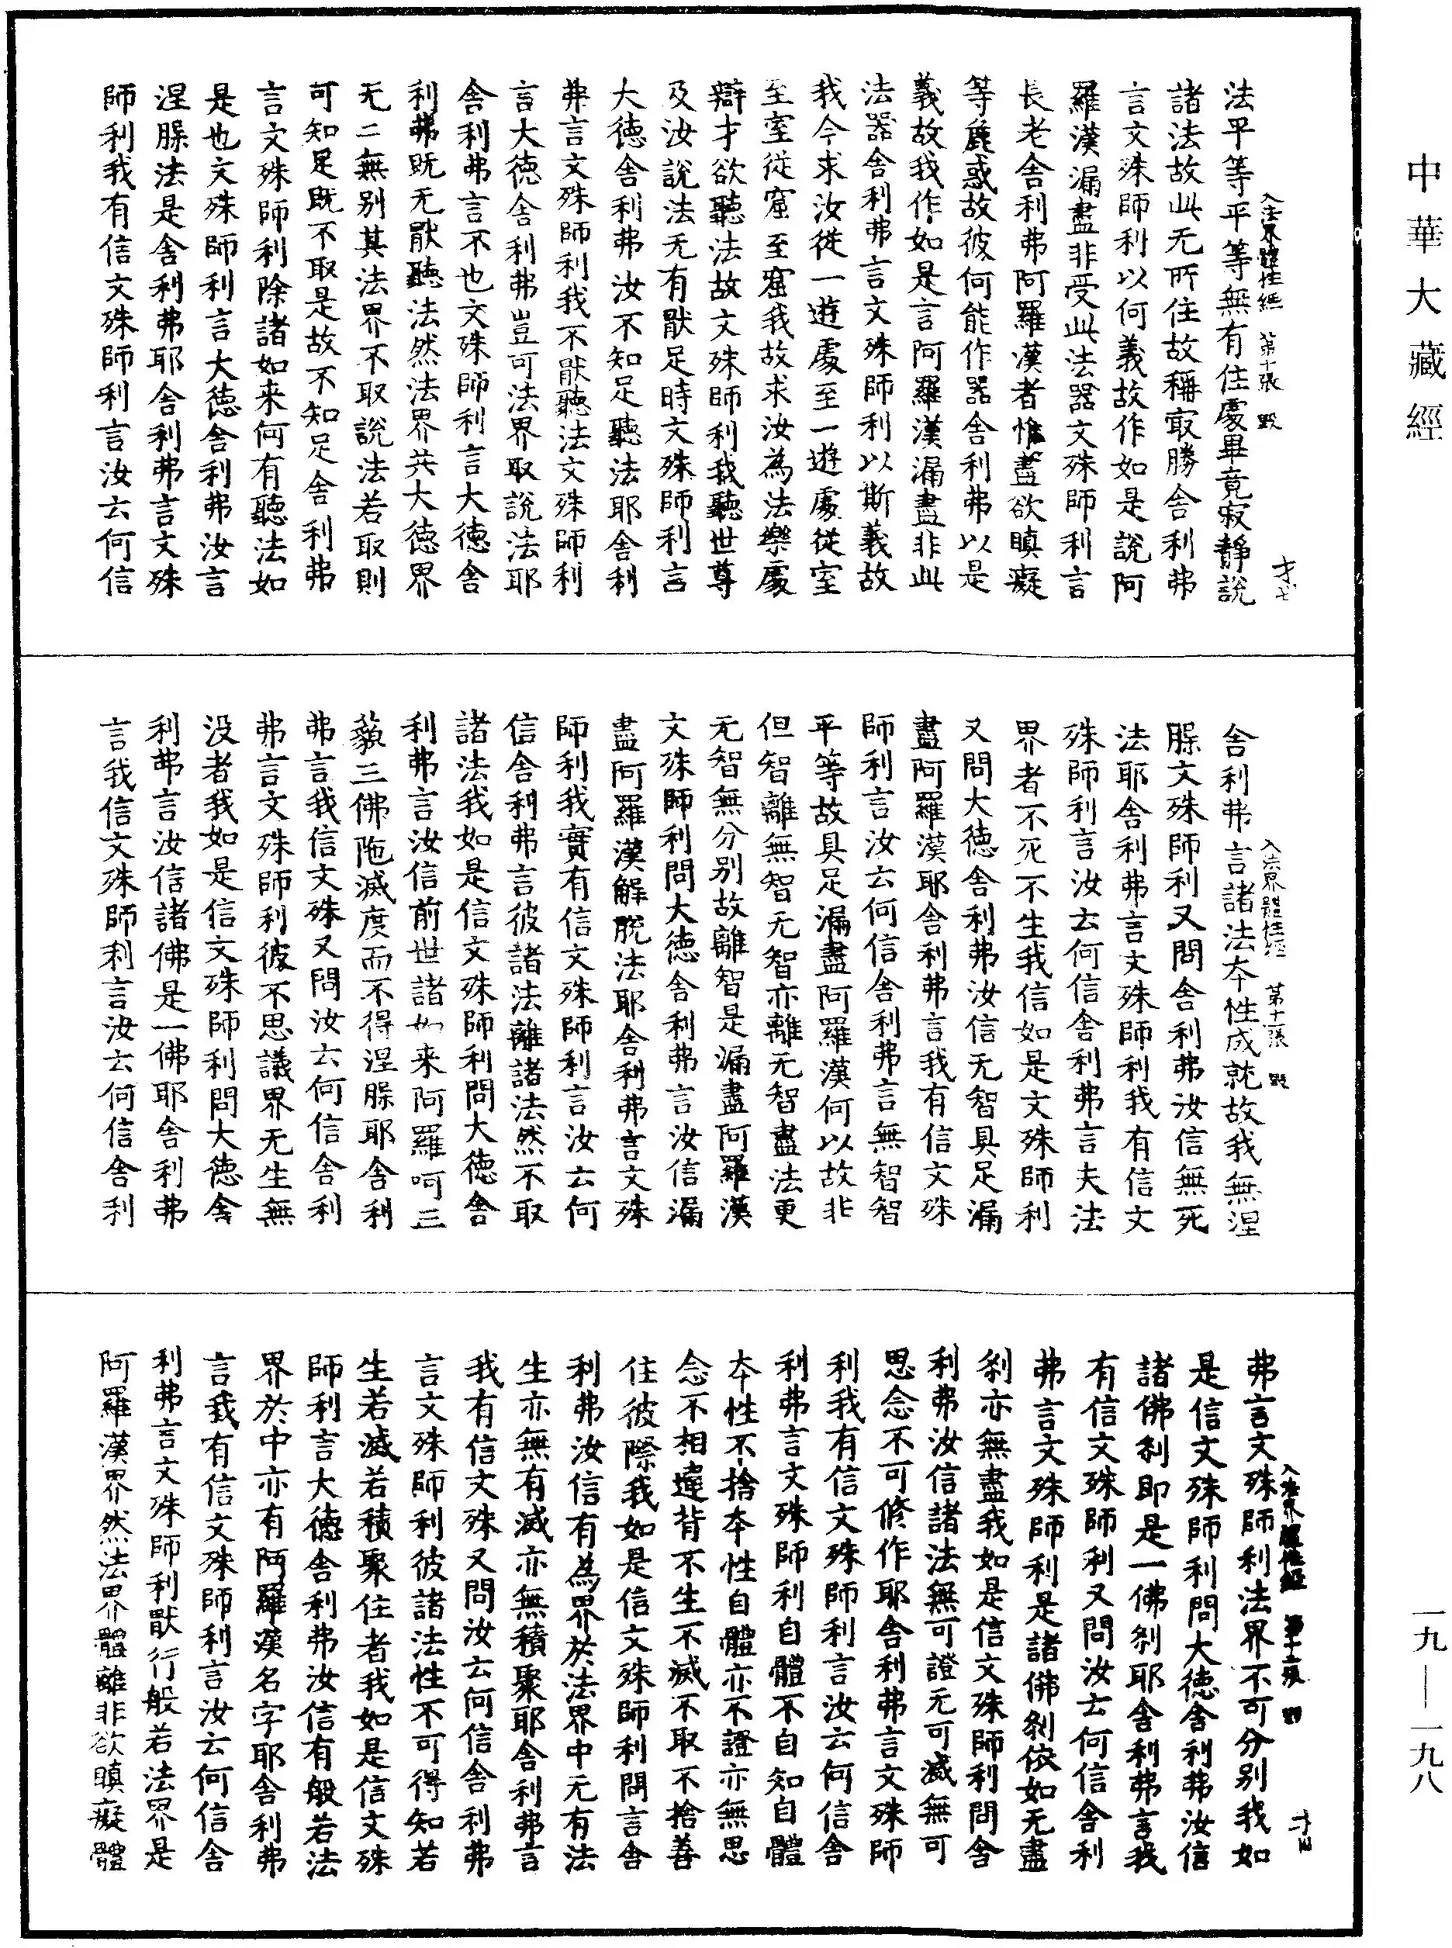 中華大藏經
入法界體性經 第十張 毀
法平等平等無有住處畢竟寂靜說
諸法故此无所住故稱㝡勝舍利弗
言文殊師利以何義故作如是說阿
羅漢漏盡非受此法器文殊師利言
長老舍利弗阿羅漢者惟盡欲瞋癡
等麁惑故彼何能作器舍利弗以是
義故我作如是言阿羅漢漏盡非此
法器舍利弗言文殊師利以斯義故
我今求汝從一遊處至一遊處從室
至室從窟至窟我故求汝為法樂處
辯才欲聽法故文殊師利我聽世尊
及汝說法无有猒足時文殊師利言
大德舍利弗汝不知足聽法耶舍利
弗言文殊師利我不猒聽法文殊師利
言大德舍利弗豈可法界取說法耶
舍利弗言不也文殊師利言大德舍
利弗既无猒聽法然法界共大德界
无二無別其法界不取說法若取則
可知足既不取是故不知足舍利弗
言文殊師利除諸如来何有聽法如
是也文殊師利言大德舍利弗汝言
涅槃法是舍利弗耶舍利弗言文殊
師利我有信文殊師利言汝云何信
入法界體性經 第十一張 毀
舍利弗言諸法本性成就故我無涅
槃文殊師利又問舍利弗汝信無死
法耶舍利弗言文殊師利我有信文
殊師利言汝云何信舍利弗言夫法
界者不死不生我信如是文殊師利
又問大德舍利弗汝信无智具足漏
盡阿羅漢耶舍利弗言我有信文殊
師利言汝云何信舍利弗言無智智
平等故具足漏盡阿羅漢何以故非
但智離無智无智亦離无智盡法更
无智無分別故離智是漏盡阿羅漢
文殊師利問大德舍利弗言汝信漏
盡阿羅漢解脫法耶舍利弗言文殊
師利我實有信文殊師利言汝云何
信舍利弗言彼諸法離諸法然不取
諸法我如是信文殊師利問大德舍
利弗言汝信前世諸如来阿羅呵三
藐三佛陁滅度而不得涅槃耶舍利
弗言我信文殊又問汝云何信舍利
弗言文殊師利彼不思議界无生無
没者我如是信文殊師利問大德舍
利弗言汝信諸佛是一佛耶舍利弗
言我信文殊師利言汝云何信舍利
入法界體性經 第十二張 毀
弗言文殊師利法界不可分別我如
是信文殊師利問大德舍利弗汝信
諸佛刹即是一佛刹耶舍利弗言我
有信文殊師利又問汝云何信舍利
弗言文殊師利是諸佛刹依如无盡
刹亦無盡我如是信文殊師利問舍
利弗汝信諸法無可證无可滅無可
思念不可修作耶舍利弗言文殊師
利我有信文殊師利言汝云何信舍
利弗言文殊師利自體不自知自體
本性不捨本性自體亦不證亦無思
念不相違背不生不滅不取不捨善
住彼際我如是信文殊師利問言舍
利弗汝信有為界於法界中无有法
生亦無有滅亦無積聚耶舍利弗言
我有信文殊又問汝云何信舍利弗
言文殊師利彼諸法性不可得知若
生若滅若積聚住者我如是信文殊
師利言大德舍利弗汝信有般若法
界於中亦有阿羅漢名字耶舍利弗
言我有信文殊師利言汝云何信舍
利弗言文殊師利猒行般若法界是
阿羅漢界然法界體離非欲瞋癡體
一九—一九八